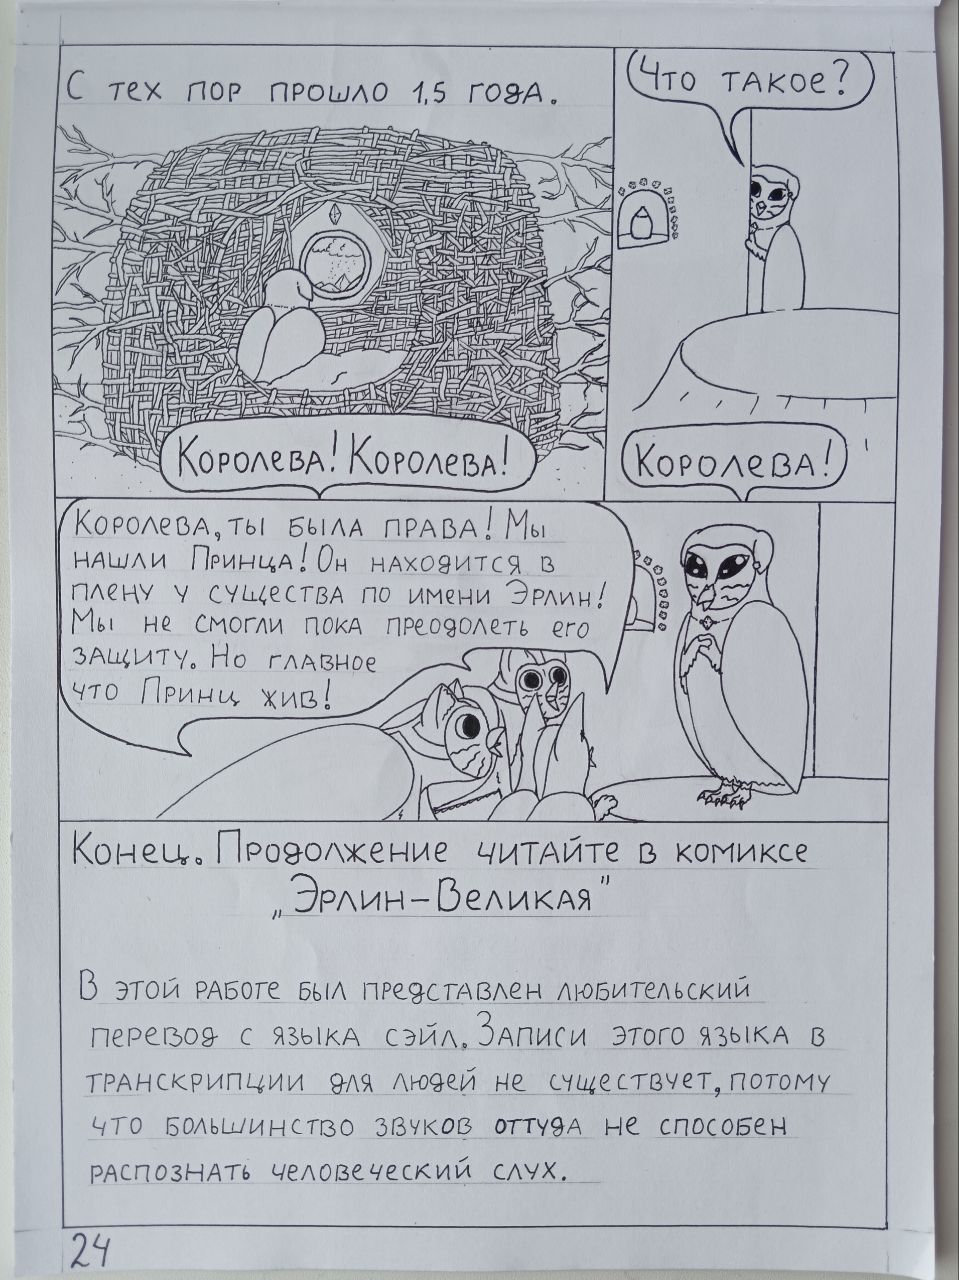 С тех пор прошло 1,5 года.
Что такое?
Королева! Королева!
Королева!
Королева, ты была права! Мы
нашли Принца! Он находится в
плену у существа по имени Эрлин!
Мы не смогли пока преодолеть его
защиту. Но главное
что Принц жив!
Конец. Продолжение читайте в комиксе
„Эрлин-Великая"
В этой работе был представлен любительский
перевод с языка сэйл. Записи этого языка в
транскрипции для людей не существует, потому
что большинство звуков оттуда не способен
распознать человеческий слух.
24